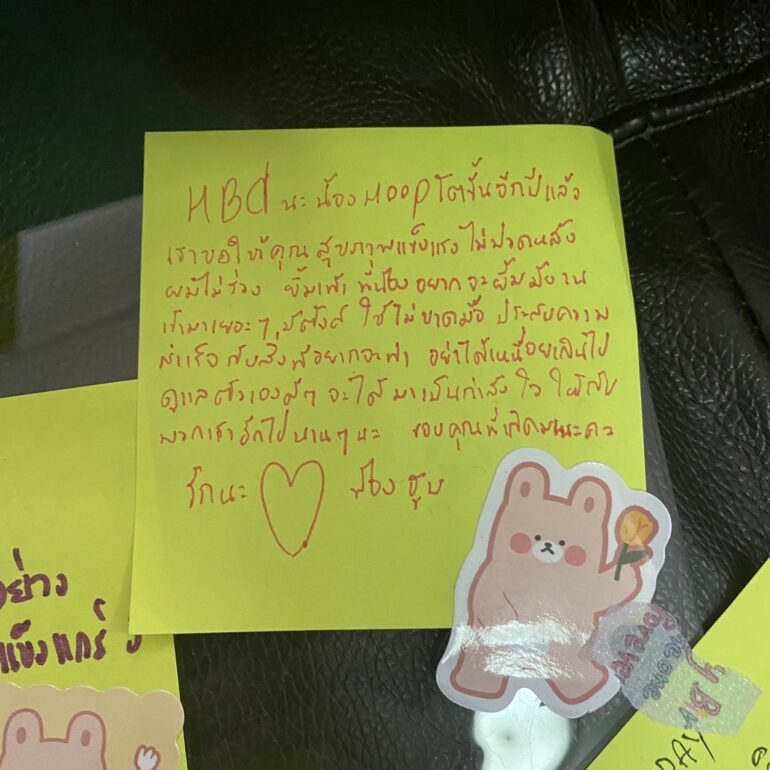 HBd นะน้องHOOP โตขึ้นอีกปีแล้ว
เราขอให้คุณ สุขภาพแข็งแรง ไม่ปวดหลัง
ผมไม่ร่วง ยิ้มเท่า ที่น้องอยากจะยิ้ม มีงาน
เข้ามาเยอะๆ มีตังค์ ใช้ไม่ขาดมือ ประสบความ
สำเร็จ กับสิ่งที่อยากจะทำ อย่าได้เหนื่อยเกินไป
ดูแลตัวเองดีๆ จะได้ มาเป็นกำลังใจ ให้กับ
พวกเราอีกไปนานๆนะ ขอบคุณที่เกิดมานะคะ
รักนะ น้องฮูบ
อย่าง
แข็งแกร่ง
DAY